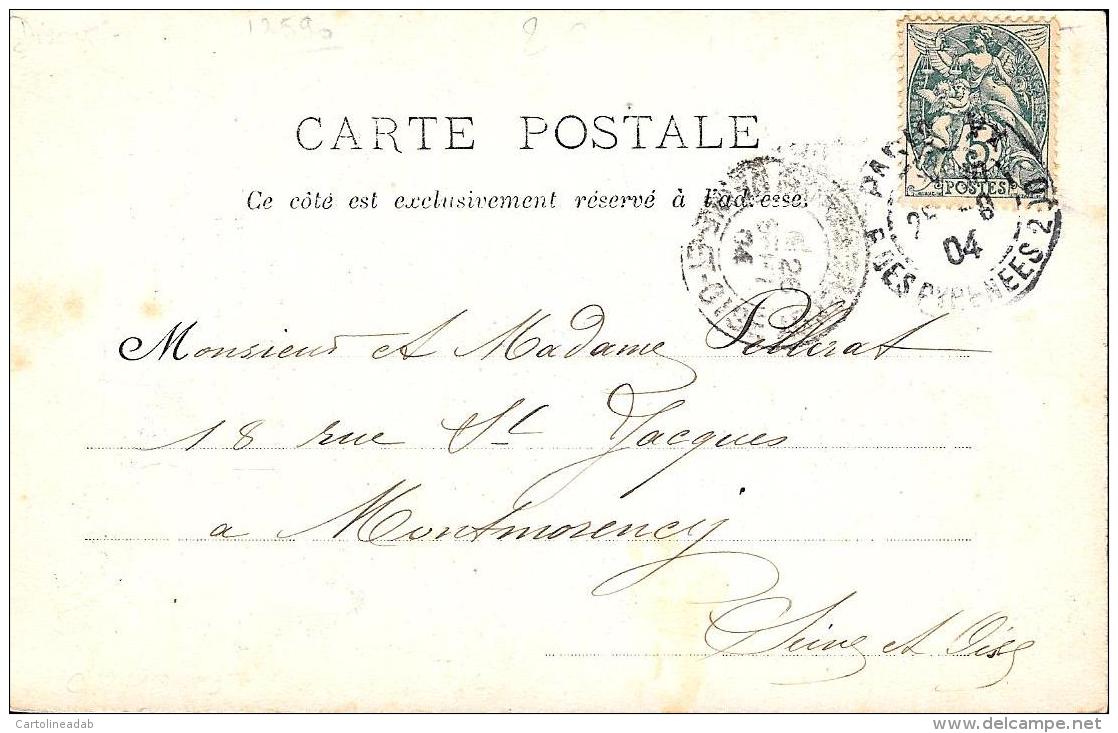 12590
CARTE POSTALE
Ce côté est exclusivement réservé à l'adresse.
POSTES
5
PARIS
R. DES PYRENEES 20
04
26
04
Monsieur et Madame
18 rue St Jacques
a Montmorency
Seine et Oise
Cartolineadab
delcampe.net